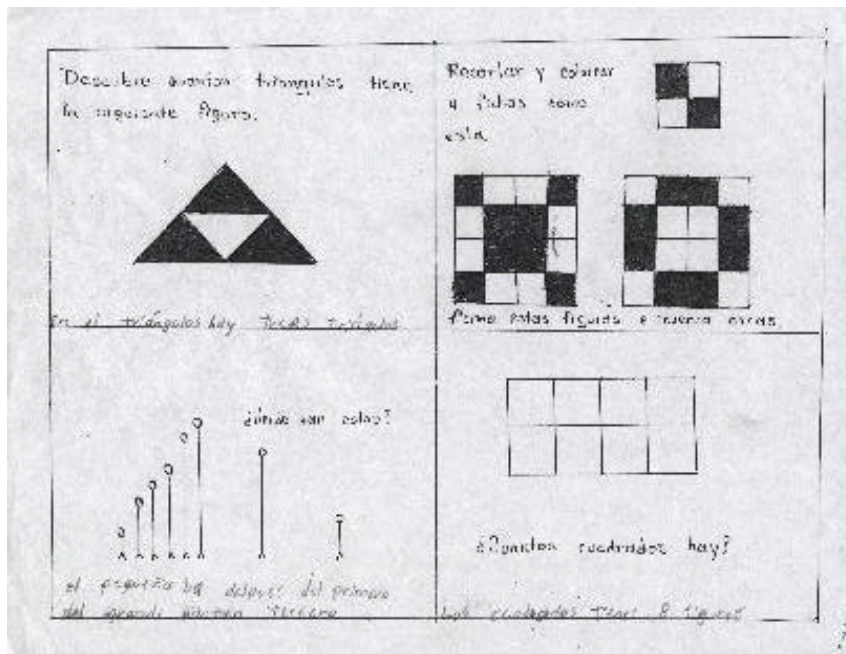 Descubre cuantos triangulos tiene
la siguiente figura.
En el triángulos hay
Recortar y colorear
4 fichas como
esta.
Forma estas figuras e inventa otras.
¿Dónde van estos?
el pequeño ba delante del primero
del grande
¿Cuantos cuadrados hay?
Los cuadrados tiene 8 figuras